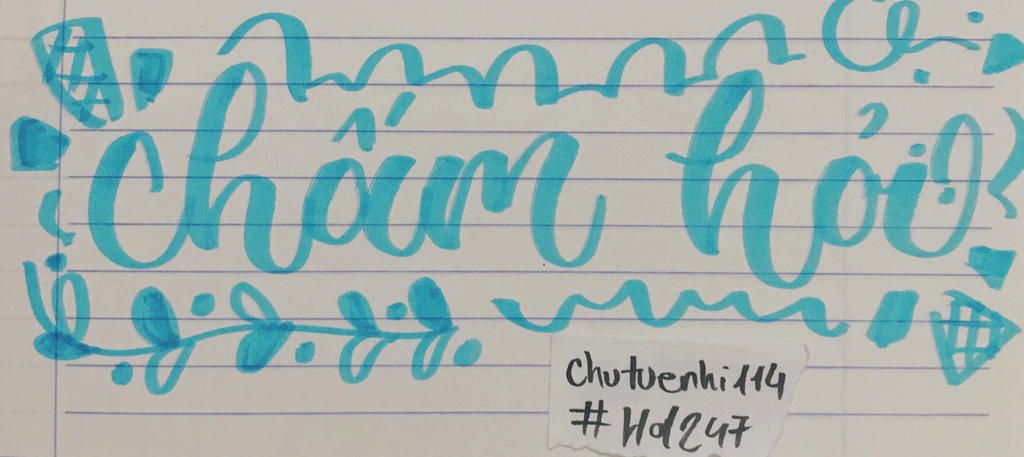 chấm hỏi?
chutuenhi114
#Hd247